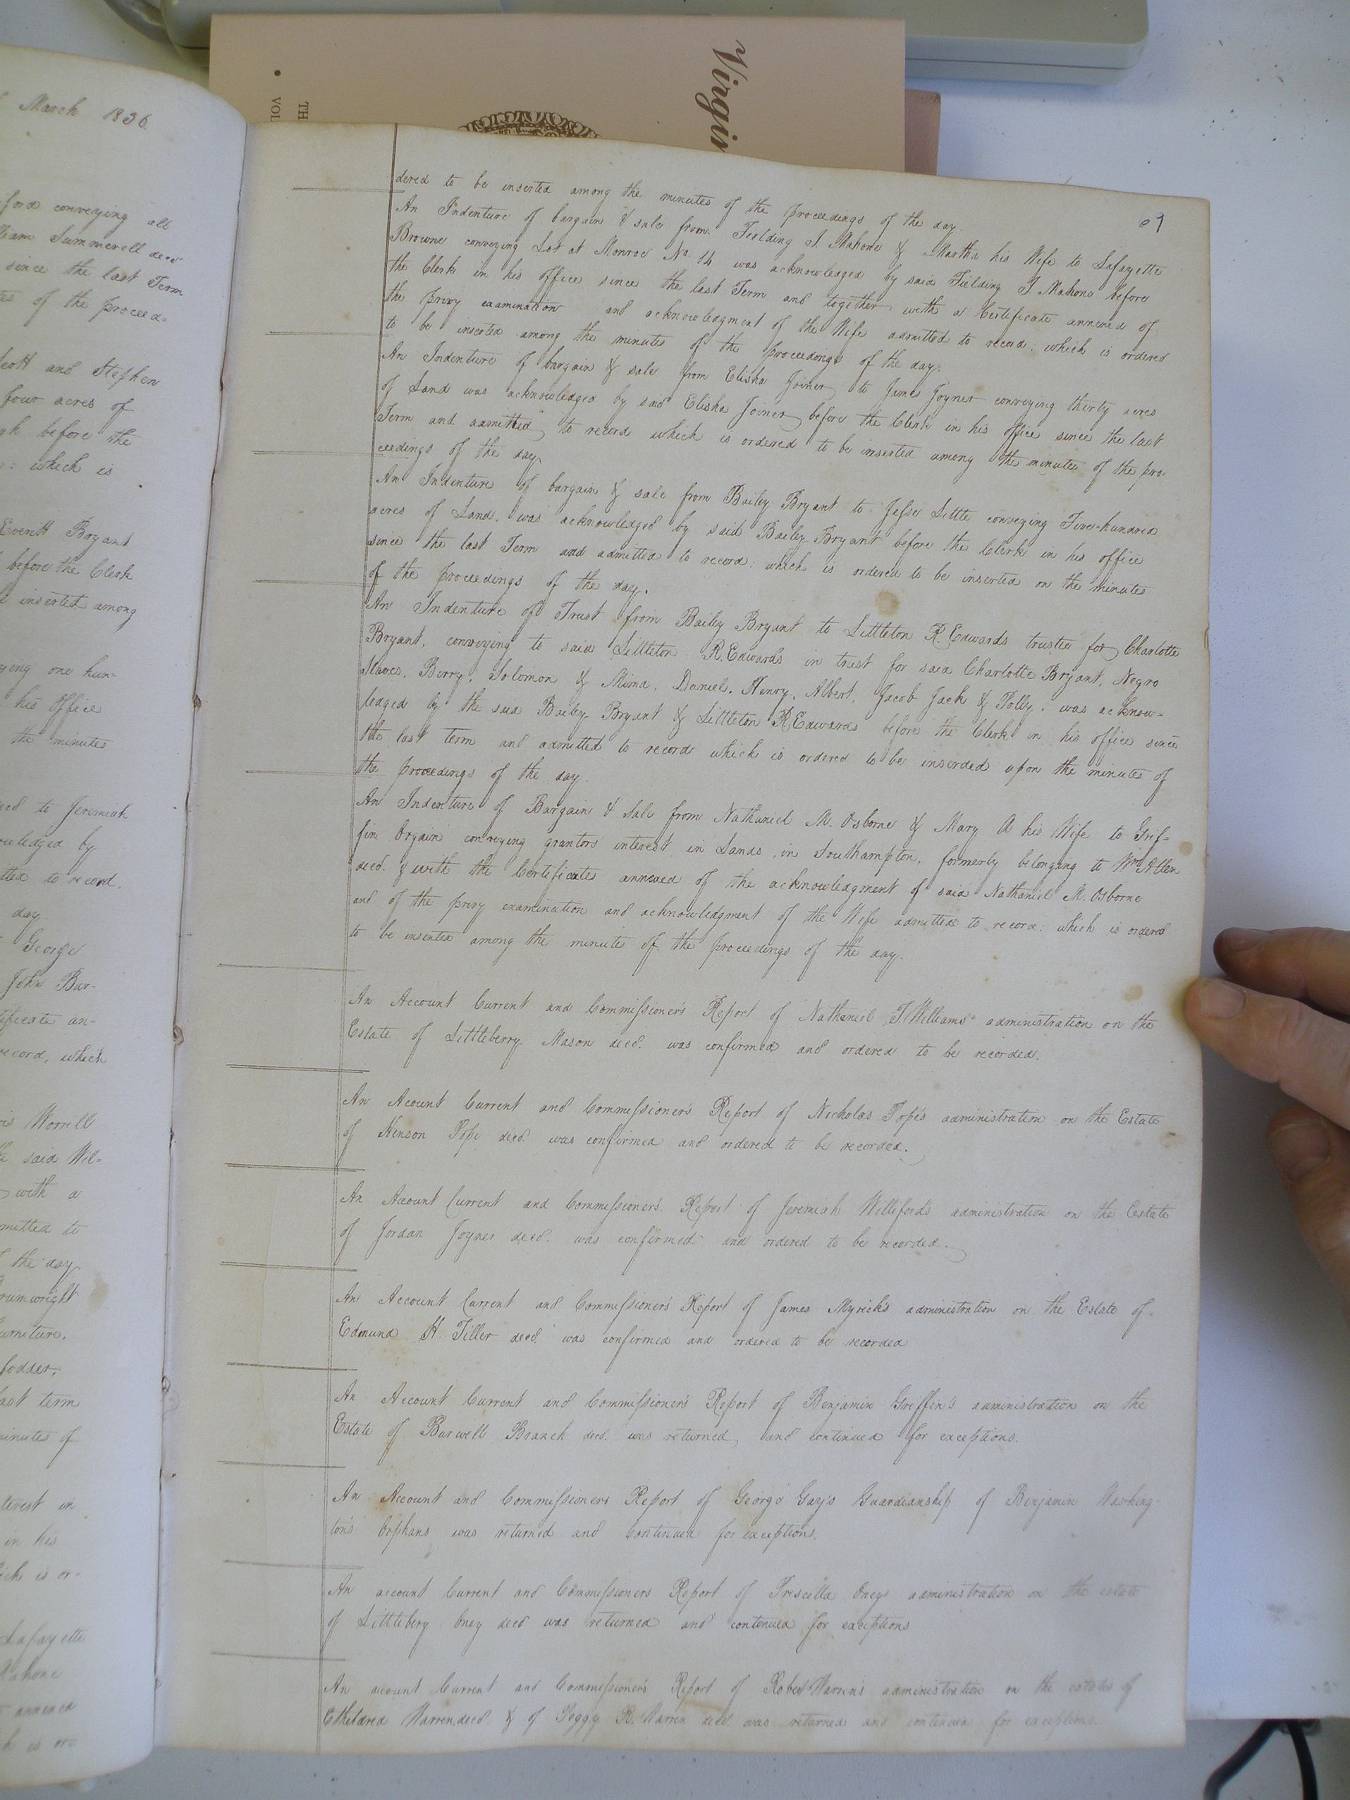 March 1836
ford conveying all
liam Summerell decd
since the last Term
tes of the proceed=
Scott and Stephen
four acres of
before the
which is
Everett Bryant
before the Clerk
inserted among
ying one hun-
his Office
the minutes
to Jeremiah
owledged by
tted to record.
day
George
John Bar-
tificate an-
record, which
Worrell
said Wil=
with a
mitted to
the day
urniture,
fodder,
last term
minutes of
terest in
in his
ich is or-
Lafayette
Mahone
annexed
is or=
Virgin
TH
VOL
dered to be inserted among the minutes of the proceedings of the day
An Indenture of bargain & sale from Feilding J. Mahone & Martha his Wife to Lafayette
Browne conveying Lot at Monroe No. 14 was acknowledged by said Fielding J. Mahone before
the Clerk in his office since the last Term and together with a Certificate annexed of
the privy examination and acknowledgment of the Wife admitted to record: which is ordered
to be inserted among the minutes of the proceedings of the day.
An Indenture of bargain & sale from Elisha Joiner to James Joyner conveying thirty acres
of Land was acknowledged by said Elisha Joiner before the Clerk in his office since the last
Term and admitted to record which is ordered to be inserted among the minutes of the pro
ceedings of the day
An Indenture of bargain & sale from Bailey Bryant to Jesse Little conveying Five hundred
acres of Land, was acknowledged by said Bailey Bryant before the Clerk in his office
since the last Term and admitted to record: which is ordered to be inserted on the minutes
of the proceedings of the day.
An Indenture of Trust from Bailey Bryant to Littleton R. Edwards trustee for Charlotte
Bryant, conveying to said Littleton R. Edwards in trust for said Charlotte Bryant, Negro
slaves, Berry, Solomon & Mima, Daniel, Henry, Albert, Jacob Jack & Polly, was acknow=
ledged by the said Bailey Bryant & Littleton R Edwards before the Clerk in his office since
the last term and admitted to record which is ordered to be inserded upon the minutes of
the proceedings of the day.
An Indenture of Bargain & Sale from Nathaniel M. Osborne & Mary A his Wife to Grif-
fin Bryain conveying grantors interest in Lands in Southampton, formerly belonging to Wm Allen
decd. & with the Certificates annexed of the acknowledgment of said Nathaniel M. Osborne
and of the privy examination and acknowledgment of the Wife admitted to record: which is ordered
to be inserted among the minutes of the proceedings of the day.
An Account Current and Commissioner's Report of Nathaniel T. Williams' administration on the
Estate of Littleberry Mason decd. was confirmed and ordered to be recorded.
An Acount Current and Commissioner's Report of Nicholas Pope's administration on the Estate
of Henson Pope decd was confirmed and ordered to be recorded.
An Account Current and Commissioner's Report of Jeremiah Williford's administration on the Estate
of Jordan Joyner decd. was confirmed and ordered to be recorded.
An Account Current and Commissioner's Report of James Myrick's administration on the Estate of
Edmund H Tiller decd was confirmed and ordered to be recorded
An Account Current and Commissioner's Report of Benjamin Griffin's administration on the
Estate of Burwell Branch decd. was returned and continued for exceptions.
An Account and Commissioners Report of George Gay's Guardianship of Benjamin Worthing
ton's Orphans was returned and continued for exceptions.
An account Current and Commissioners Report of Priscilla Oneys administration on the estate
of Littlebery Oney decd was returned and continued for exceptions
An account Current and Commissioner's Report of Robert Warren's administration on the estates of
Etheldred Warren decd & of Peggy R. Warren decd was returned and continued for exceptions.